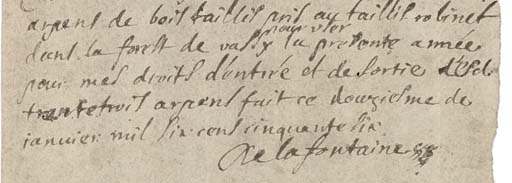 arpens de bois taillis pris au taillis robinet
dans la forest de vassy pour user la presente année
pour mes droits d'entré et de sortie
trente trois arpens fait ce douziesme de
janvier mil six cens cinquante six
De la fontaine